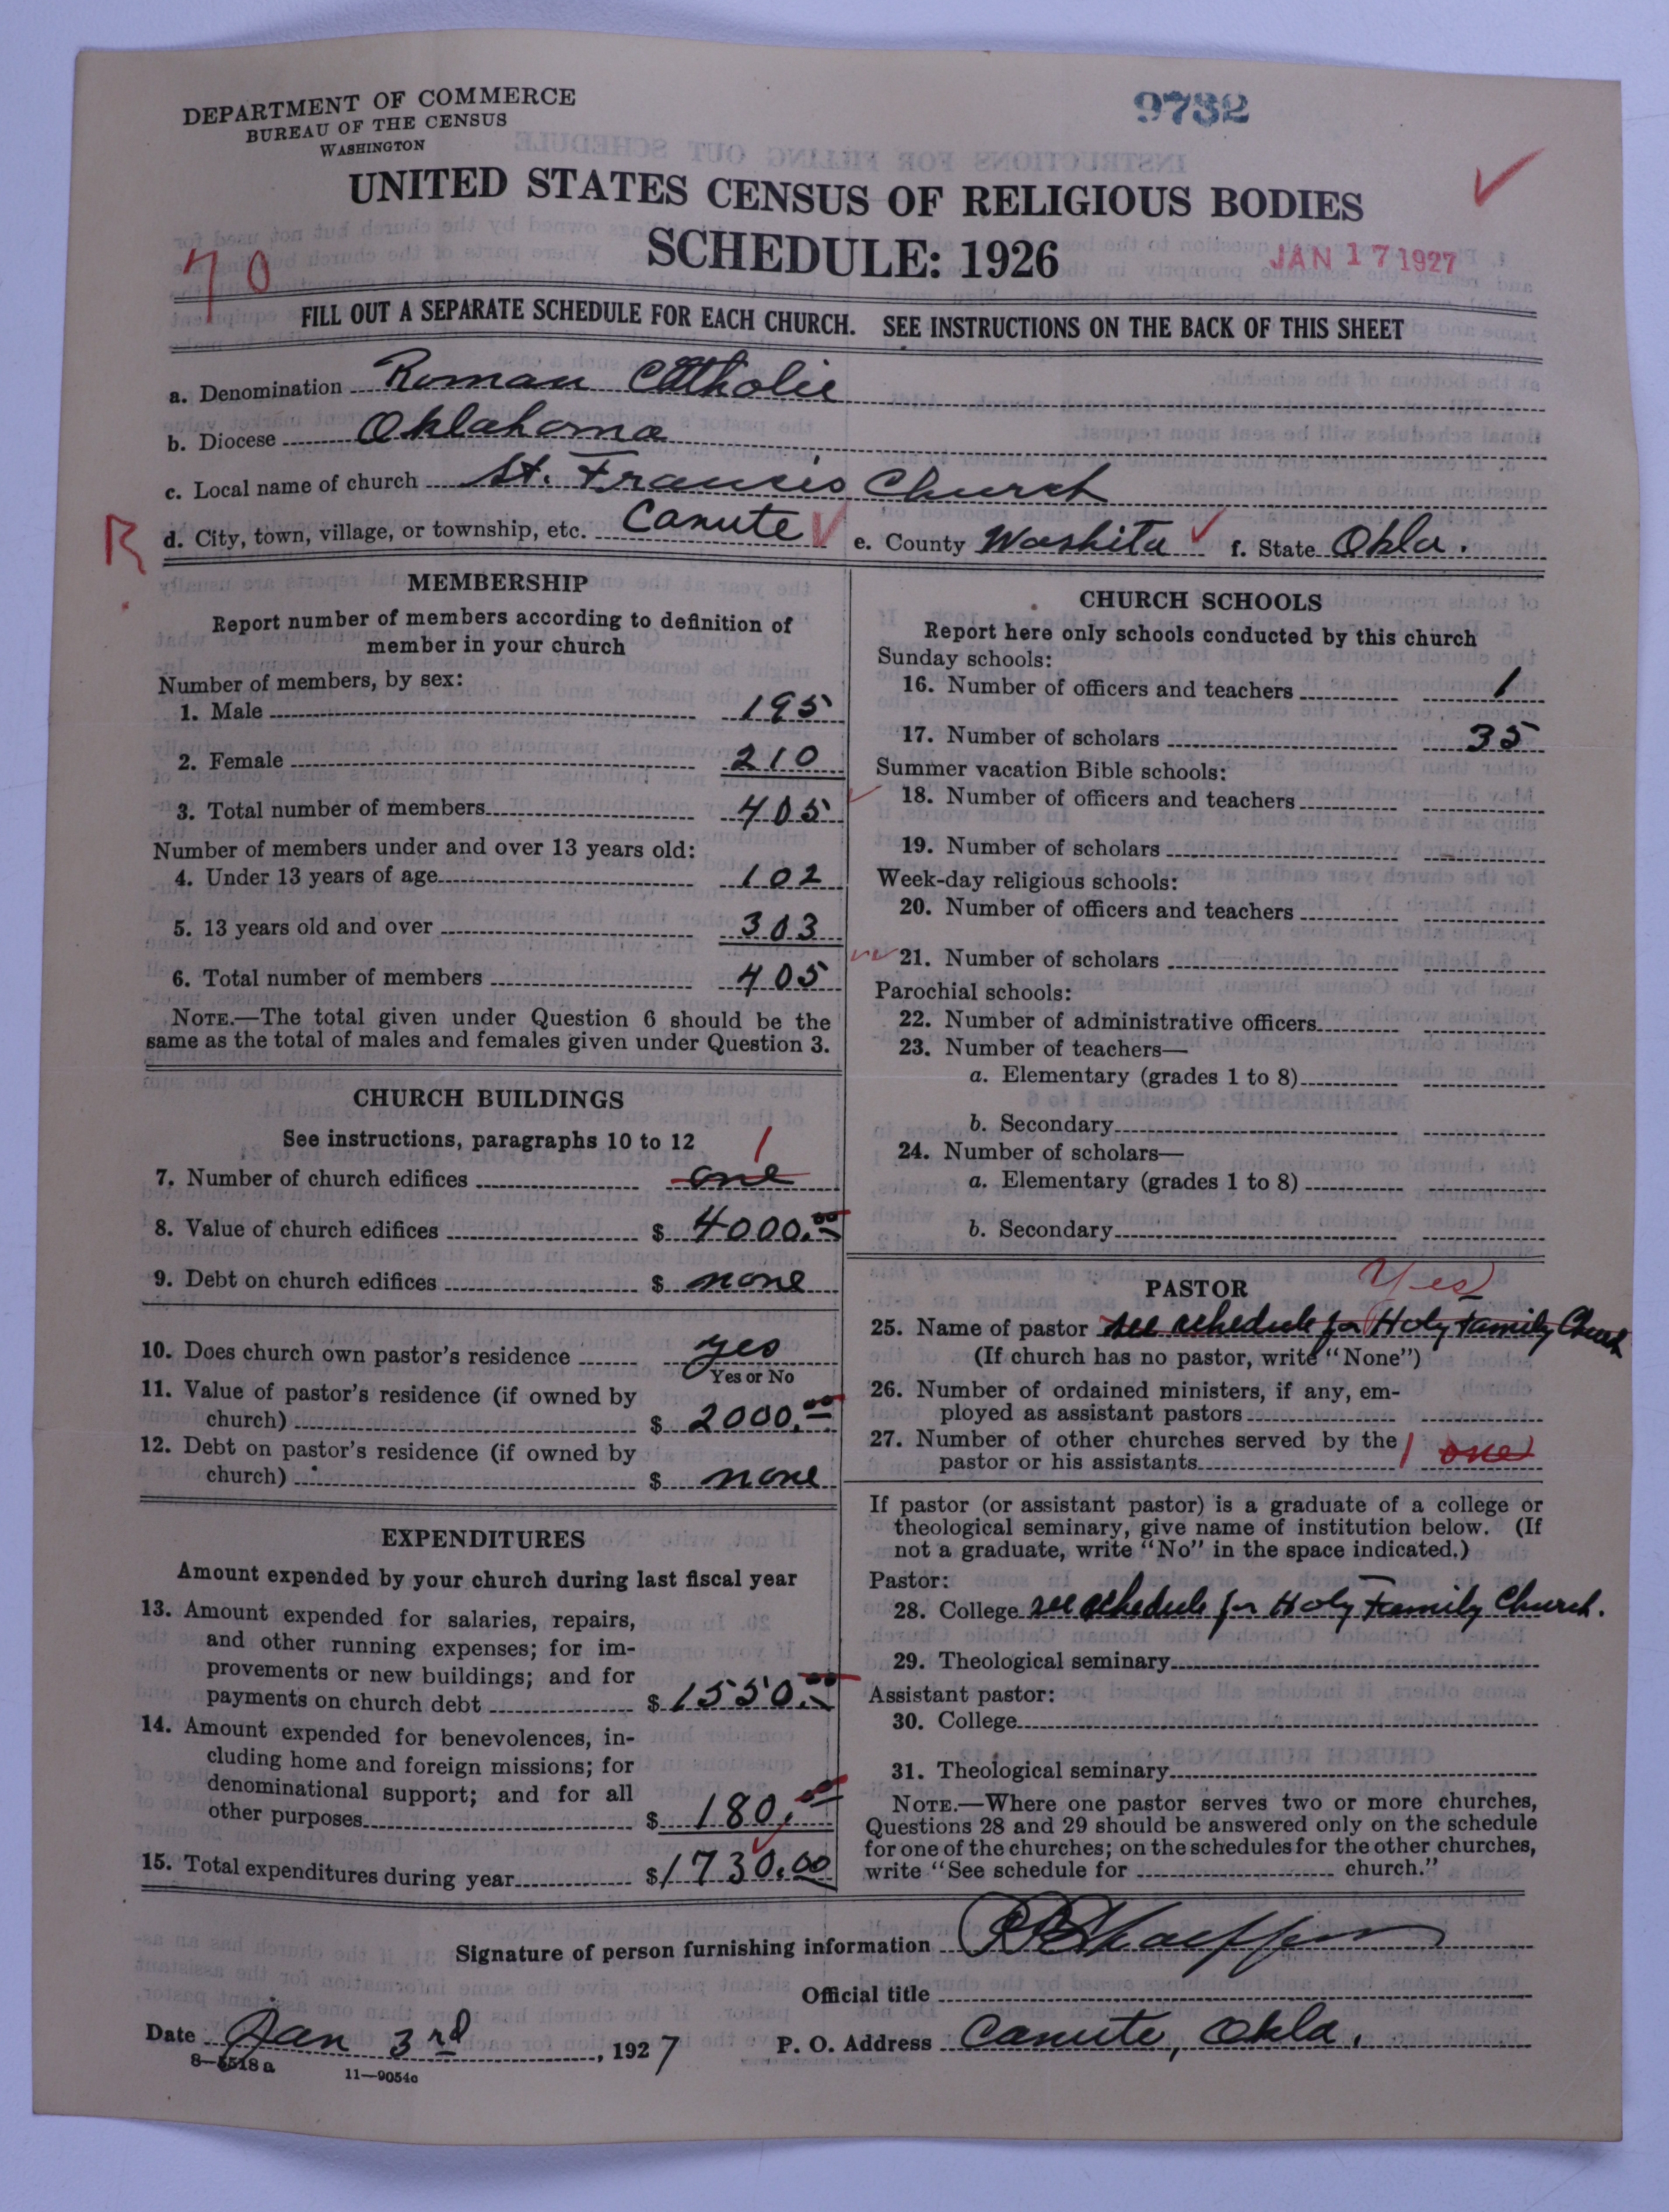 DEPARTMENT OF COMMERCE
BUREAU OF THE CENSUS
WASHINGTON
9732
UNITED STATES CENSUS OF RELIGIOUS BODIES
SCHEDULE: 1926
JAN 17 1927
70
FILL OUT A SEPARATE SCHEDULE FOR EACH CHURCH. SEE INSTRUCTIONS ON THE BACK OF THIS SHEET
a. Denomination Roman Catholic
b. Diocese Oklahoma
c. Local name of church St. Francis Church
R d. City, town, village, or township, etc. Canute e. County Washita f. State Okla.
MEMBERSHIP
Report number of members according to definition of
member in your church
Number of members, by sex:
1. Male 195
2. Female 210
3. Total number of members 405
Number of members under and over 13 years old:
4. Under 13 years of age 102
5. 13 years old and over 303
6. Total number of members 405
NOTE.—The total given under Question 6 should be the
same as the total of males and females given under Question 3.
CHURCH BUILDINGS
See instructions, paragraphs 10 to 12
1
7. Number of church edifices one
8. Value of church edifices $ 4000.00
9. Debt on church edifices $ none
10. Does church own pastor's residence yes
Yes or No
11. Value of pastor's residence (if owned by
church) $ 2000.00
12. Debt on pastor's residence (if owned by
church) $ none
EXPENDITURES
Amount expended by your church during last fiscal year
13. Amount expended for salaries, repairs,
and other running expenses; for im-
provements or new buildings; and for
payments on church debt $ 1550.00
14. Amount expended for benevolences, in-
cluding home and foreign missions; for
denominational support; and for all
other purposes $ 180.00
15. Total expenditures during year $ 1730.00
CHURCH SCHOOLS
Report here only schools conducted by this church
Sunday schools:
16. Number of officers and teachers 1
17. Number of scholars 35
Summer vacation Bible schools:
18. Number of officers and teachers
19. Number of scholars
Week-day religious schools:
20. Number of officers and teachers
21. Number of scholars
Parochial schools:
22. Number of administrative officers
23. Number of teachers—
a. Elementary (grades 1 to 8)
b. Secondary
24. Number of scholars—
a. Elementary (grades 1 to 8)
b. Secondary
PASTOR Yes
25. Name of pastor see schedule for Holy Family Church
(If church has no pastor, write "None")
26. Number of ordained ministers, if any, em-
ployed as assistant pastors
27. Number of other churches served by the
pastor or his assistants 1 one
If pastor (or assistant pastor) is a graduate of a college or
theological seminary, give name of institution below. (If
not a graduate, write "No" in the space indicated.)
Pastor:
28. College see schedule for Holy Family Church.
29. Theological seminary
Assistant pastor:
30. College
31. Theological seminary
NOTE.—Where one pastor serves two or more churches,
Questions 28 and 29 should be answered only on the schedule
for one of the churches; on the schedules for the other churches,
write "See schedule for church."
Signature of person furnishing information
Official title
Date Jan 3rd, 1927 P. O. Address Canute, Okla.
8—6518 a 11—9054c